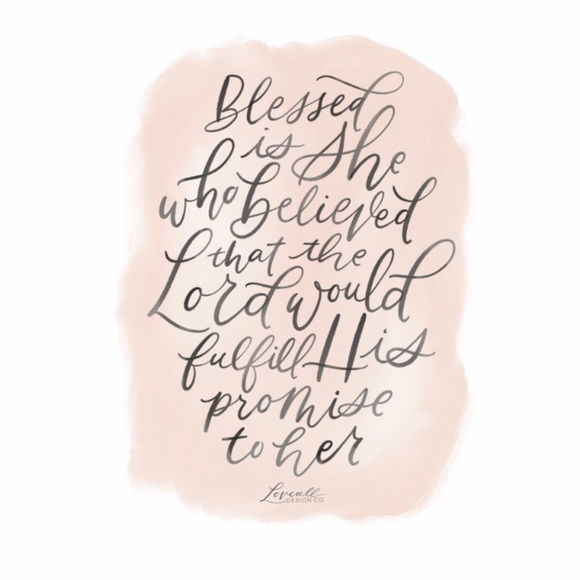 Blessed
is She
who believed
that the
Lord would
fulfill His
promise
to her
Loveall
DESIGN CO.